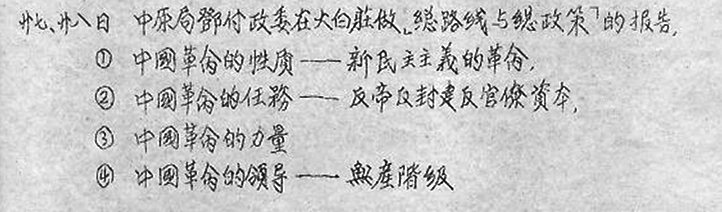 廿七、廿八日 中原局鄧付政委在大白莊做「總路线与總政策」的报告,
① 中國革命的性质——新民主主義的革命,
② 中國革命的任務——反帝反封建反官僚资本,
③ 中國革命的力量
④ 中國革命的領导——無產階级